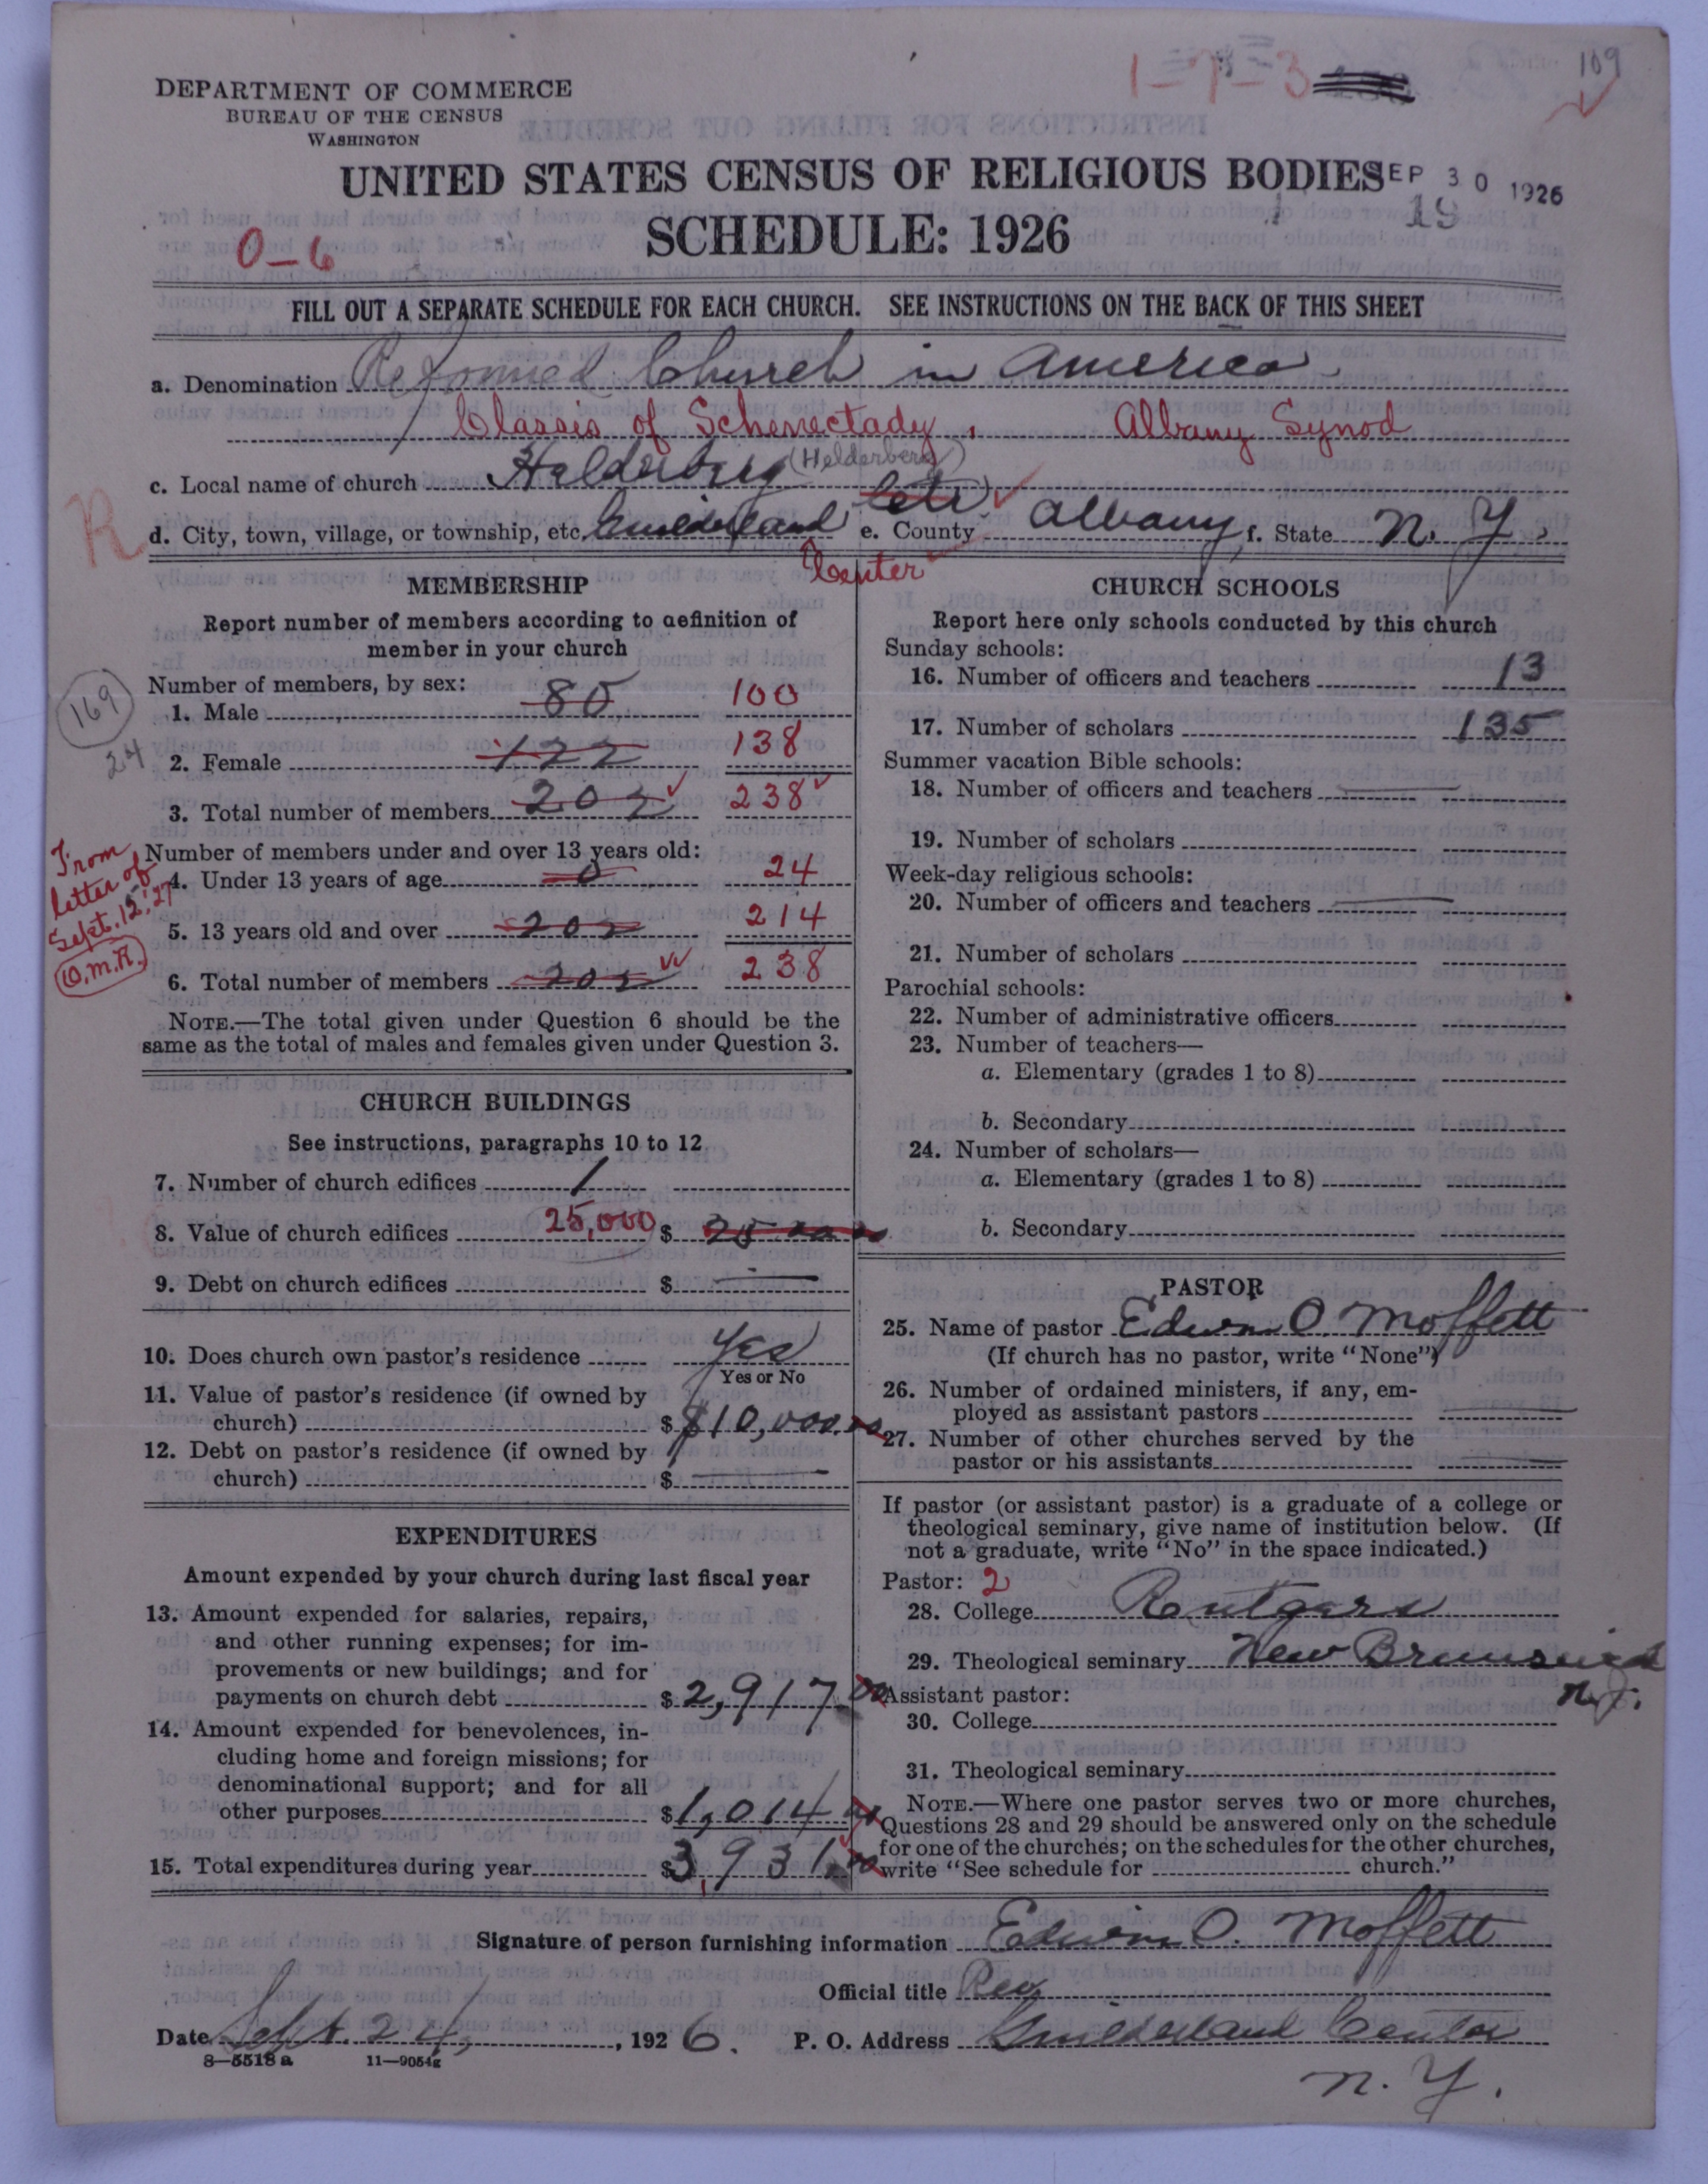 109
1-7-3
DEPARTMENT OF COMMERCE
BUREAU OF THE CENSUS
WASHINGTON
UNITED STATES CENSUS OF RELIGIOUS BODIES
SEP 30 1926
19
SCHEDULE: 1926
0-6
FILL OUT A SEPARATE SCHEDULE FOR EACH CHURCH. SEE INSTRUCTIONS ON THE BACK OF THIS SHEET
a. Denomination Reformed Church in America
Classis of Schenectady, Albany Synod
c. Local name of church Helderberg (Helderberg)
R
d. City, town, village, or township, etc. Guilderland Cetr. Center e. County Albany f. State N. Y.
MEMBERSHIP
Report number of members according to definition of
member in your church
Number of members, by sex:
169
24
1. Male 80 100
2. Female 122 138
3. Total number of members 202 238
Number of members under and over 13 years old:
4. Under 13 years of age 0 24
5. 13 years old and over 202 214
6. Total number of members 202 238
From
letter of
Sept. 15, '27
O.M.R.
NOTE.—The total given under Question 6 should be the
same as the total of males and females given under Question 3.
CHURCH BUILDINGS
See instructions, paragraphs 10 to 12
7. Number of church edifices 1
8. Value of church edifices 25,000 $ 25 000
9. Debt on church edifices $ —
10. Does church own pastor's residence Yes
Yes or No
11. Value of pastor's residence (if owned by
church) $ $10,000.00
12. Debt on pastor's residence (if owned by
church) $ —
EXPENDITURES
Amount expended by your church during last fiscal year
13. Amount expended for salaries, repairs,
and other running expenses; for im-
provements or new buildings; and for
payments on church debt $ 2,917.00
14. Amount expended for benevolences, in-
cluding home and foreign missions; for
denominational support; and for all
other purposes $ 1,014
15. Total expenditures during year $ 3,931.00
CHURCH SCHOOLS
Report here only schools conducted by this church
Sunday schools:
16. Number of officers and teachers 13
17. Number of scholars 135
Summer vacation Bible schools:
18. Number of officers and teachers —
19. Number of scholars
Week-day religious schools:
20. Number of officers and teachers —
21. Number of scholars
Parochial schools:
22. Number of administrative officers
23. Number of teachers—
a. Elementary (grades 1 to 8)
b. Secondary
24. Number of scholars—
a. Elementary (grades 1 to 8)
b. Secondary
PASTOR
25. Name of pastor Edwin O. Moffett
(If church has no pastor, write "None")
26. Number of ordained ministers, if any, em-
ployed as assistant pastors —
27. Number of other churches served by the
pastor or his assistants —
If pastor (or assistant pastor) is a graduate of a college or
theological seminary, give name of institution below. (If
not a graduate, write "No" in the space indicated.)
Pastor: 2
28. College Rutgers
29. Theological seminary New Brunswick
N.J.
Assistant pastor:
30. College
31. Theological seminary
NOTE.—Where one pastor serves two or more churches,
Questions 28 and 29 should be answered only on the schedule
for one of the churches; on the schedules for the other churches,
write "See schedule for church."
Signature of person furnishing information Edwin O. Moffett
Official title Rev.
Date Sept. 24, 1926. P. O. Address Guilderland Center
N. Y.
8—5518 a 11—9054g